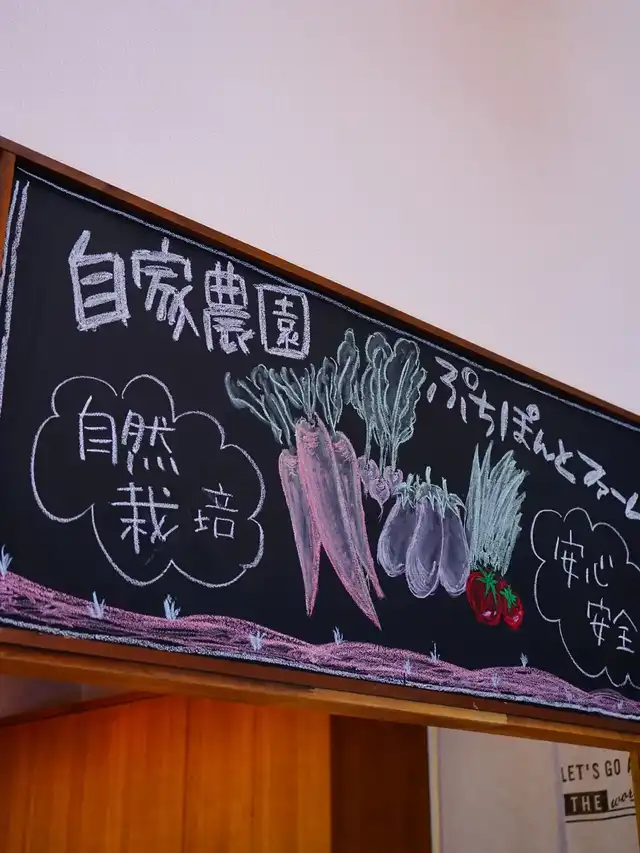 自家農園
ぷちぽんとファーム
自然
栽培
安心
安全
LET'S GO
THE